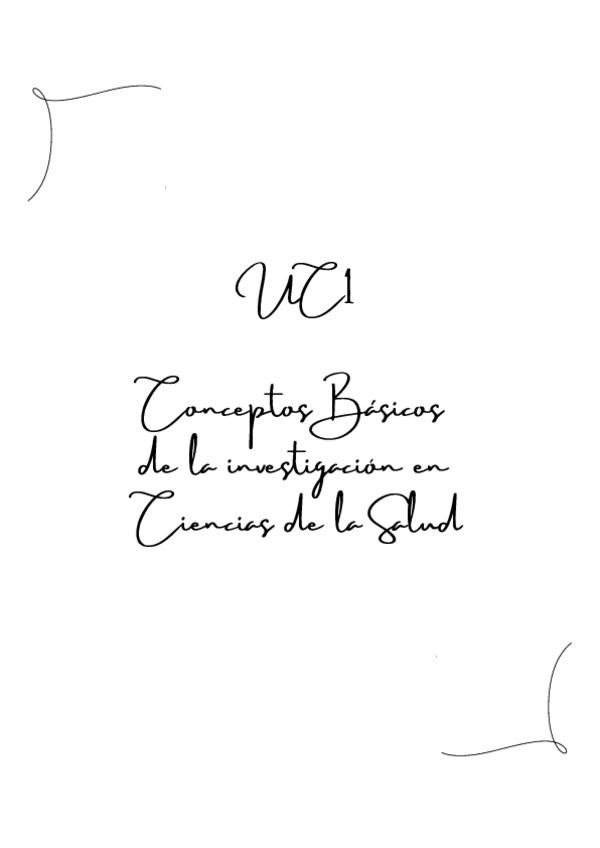 UC1
Conceptos Básicos
de la investigación en
Ciencias de la Salud